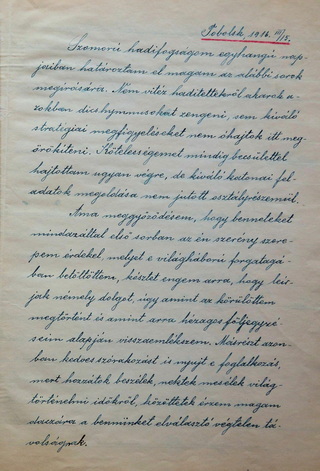 Tobolsk, 1916. III/15.
Szomorú hadifogságom egyhangú nap-
jaiban határoztam el magam az alábbi sorok
megirására. Nem vitéz haditettekről akarok a-
zokban dicshymnusokat zengeni, sem kiváló
stratégiai megfigyeléseket nem óhajtok itt meg-
örökiteni. Kötelességemet mindig becsülettel
hajtottam ugyan végre, de kiváló katonai fel-
adatok megoldása nem jutott osztályrészemül.
Ama meggyőződésem, hogy benneteket
mindazáltal első sorban az én szerény szere-
pem érdekel, melyet e világháború forgatagá-
ban betöltöttem, késztet engem arra, hogy leir-
jak némely dolgot, úgy amint az körülöttem
megtörtént és amint arra hézagos följegyzé
seim alapján visszaemlékszem. Másrészt azon-
ban kedves szórakozást is nyújt e foglalkozás,
mert hozzátok beszélek, nektek mesélek világ-
történelmi időkről, közöttetek érzem magam
daczára a bennünket elválasztó végtelen tá-
volságnak.